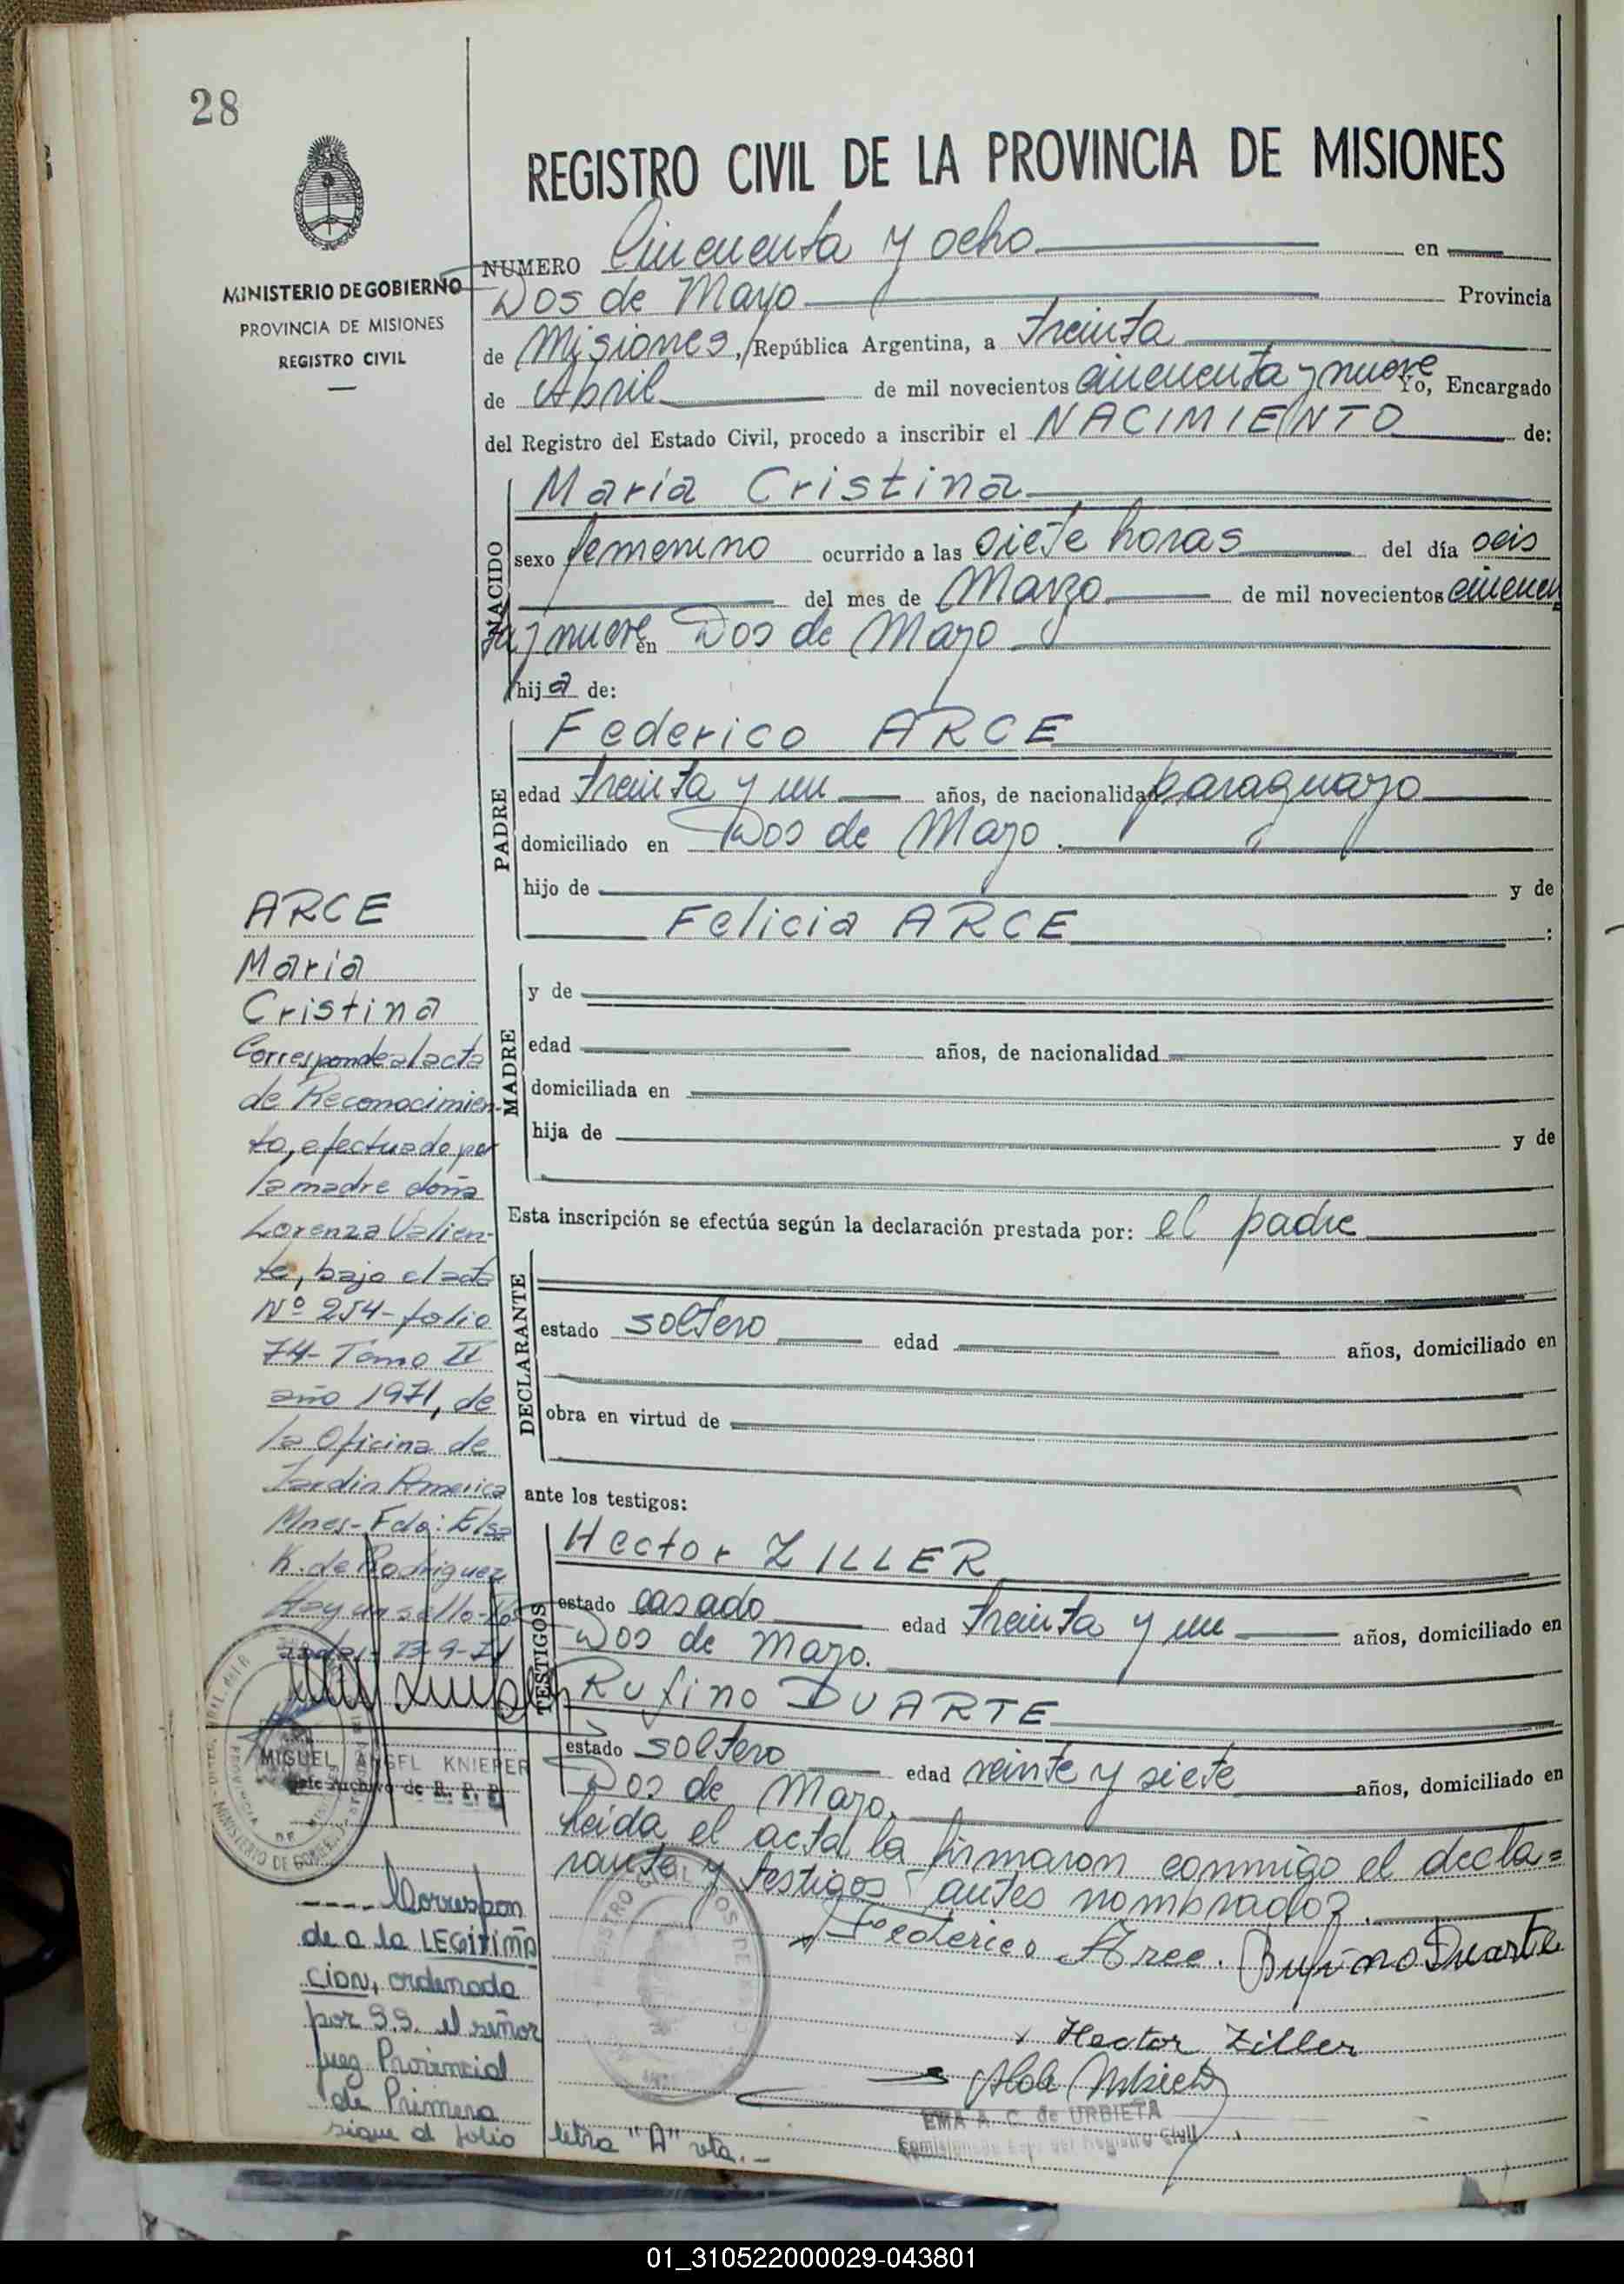 28
MINISTERIO DE GOBIERNO
PROVINCIA DE MISIONES
REGISTRO CIVIL
REGISTRO CIVIL DE LA PROVINCIA DE MISIONES
NUMERO Cincuenta y ocho en
Dos de Mayo Provincia
de Misiones, República Argentina, a treinta
de Abril de mil novecientos cincuenta y nueve Yo, Encargado
del Registro del Estado Civil, procedo a inscribir el NACIMIENTO de:
NACIDO
María Cristina
sexo femenino ocurrido a las siete horas del día seis
del mes de Marzo de mil novecientos cincuen
ta y nueve en Dos de Mayo
hija de:
PADRE
Federico ARCE
edad treinta y un años, de nacionalidad paraguayo
domiciliado en Dos de Mayo.
hijo de y de
Felicia ARCE :
MADRE
y de
edad años, de nacionalidad
domiciliada en
hija de y de
Esta inscripción se efectúa según la declaración prestada por: el padre
DECLARANTE
estado soltero edad años, domiciliado en
obra en virtud de
ante los testigos:
TESTIGOS
Hector ZILLER
estado casado edad treinta y un años, domiciliado en
Dos de Mayo.
Rufino DUARTE
estado soltero edad veinte y siete años, domiciliado en
Dos de Mayo.
Leida el acta la firmaron conmigo el decla=
rante y testigos antes nombrados.
Federico Arce. Rufino Duarte
Hector Ziller
EMA A. C. de URBIETA
ARCE
María
Cristina
Corresponde al acta
de Reconocimien-
to, efectuado por
la madre doña
Lorenza Valien-
te, bajo el acta
Nº 254- folio
74- Tomo II
año 1971, de
la Oficina de
Jardin America
Mnes- Fdo: Elsa
K. de Rodriguez
Hay un sello-
13-9-71
MIGUEL ANGEL KNIEPER
Jefe Archivo de R. P. P.
Correspon
de a la LEGITIMA
CION, ordenada
por S.S. el señor
Juez Provincial
de Primera
sigue al folio letra "A" vta.-
01_310522000029-043801